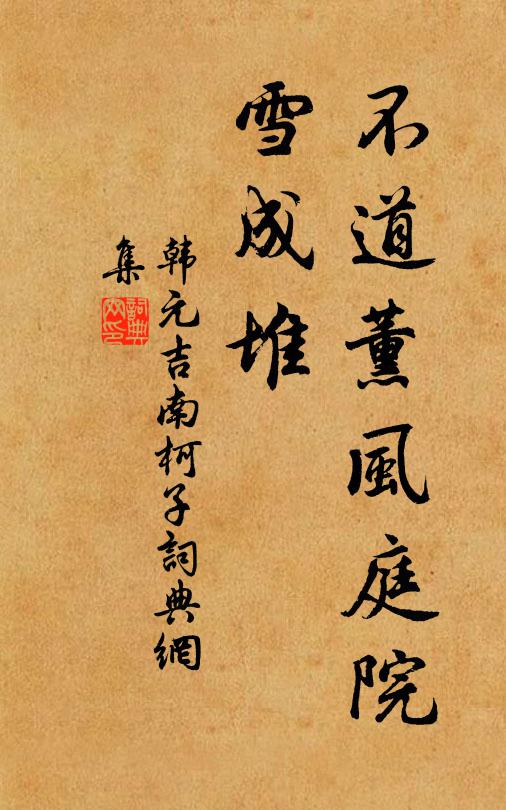 不道薰風庭院
雪成堆
韩元吉南柯子詞典網
集
詞典網印